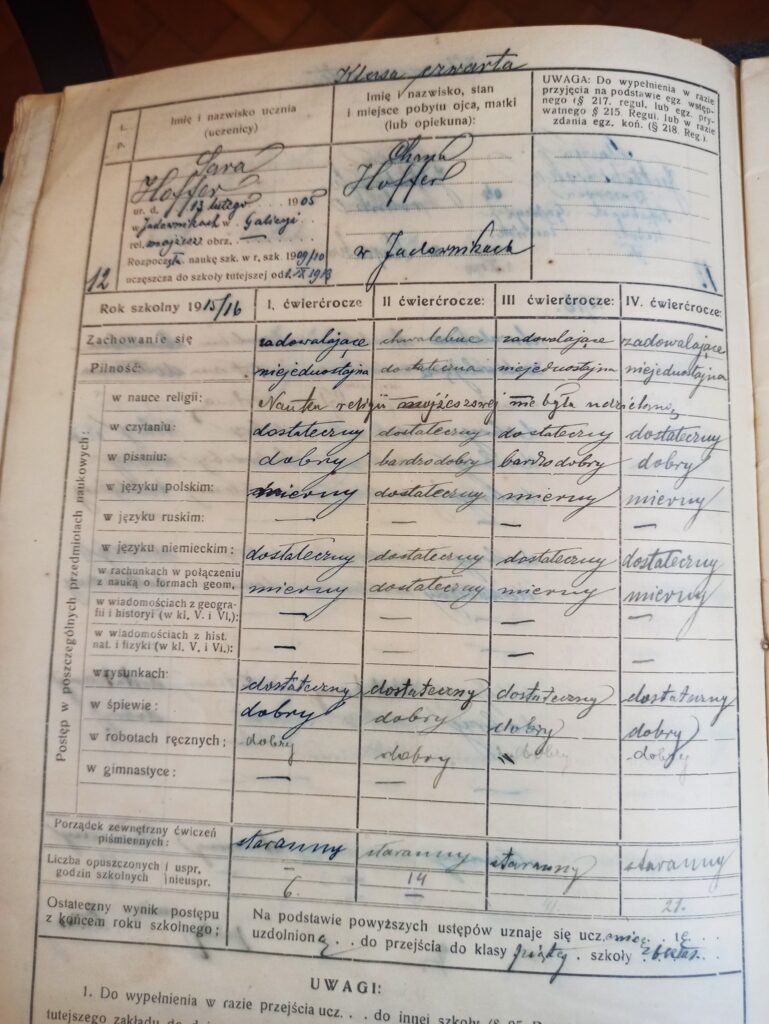 Klasa czwarta
P. L.
Imię i nazwisko ucznia
(uczenicy)
Imię i nazwisko, stan
i miejsce pobytu ojca, matki
(lub opiekuna):
UWAGA: Do wypełnienia w razie
przyjęcia na podstawie egz. wstęp-
nego (§ 217. regul. lub egz. pry-
watnego § 215. Regul. lub w razie
zdania egz. koń. (§ 218. Reg.).
Sara
Hoffer
ur. d. 13 lutego 1905
w Jadownikach w Galicyi
rel. mojżesz obrz. —
Rozpoczęła naukę szk. w r. szk. 1909/10
uczęszcza do szkoły tutejszej od 1. IX 1913
12
Hoffer
w Jadownikach
Rok szkolny 1915/16 I. ćwierćrocze II ćwierćrocze: III ćwierćrocze: IV. ćwierćrocze:
Zachowanie się zadowalające chwalebne zadowalające zadowalające
Pilność: niejednostajna dostateczna niejednostajna niejednostajna
Postęp w poszczególnych przedmiotach naukowych:
w nauce religii: Nauka religii mojżeszowej nie była udzielona
w czytaniu: dostateczny dostateczny dostateczny dostateczny
w pisaniu: dobry bardzo dobry bardzo dobry dobry
w języku polskim: mierny dostateczny mierny mierny
w języku ruskim: — — — —
w języku niemieckim: dostateczny dostateczny dostateczny dostateczny
w rachunkach w połączeniu
z nauką o formach geom. mierny dostateczny mierny mierny
w wiadomościach z geogra-
fii i historyi (w kl. V. i VI.): — — — —
w wiadomościach z hist.
nat. i fizyki (w kl. V. i VI.): — — — —
w rysunkach: dostateczny dostateczny dostateczny dostateczny
w śpiewie: dobry dobry dobry dobry
w robotach ręcznych: dobry dobry dobry dobry
w gimnastyce: —
Porządek zewnętrzny ćwiczeń
piśmiennych: staranny staranny staranny staranny
Liczba opuszczonych uspr. — 14
godzin szkolnych nieuspr. 6. — 21.
Ostateczny wynik postępu
z końcem roku szkolnego:
Na podstawie powyższych ustępów uznaje się uczenicę . . tę . . .
uzdolnioną . . do przejścia do klasy piątej . szkoły
UWAGI:
1. Do wypełnienia w razie przejścia ucz. . . do innej szkoły
tutejszego zakładu